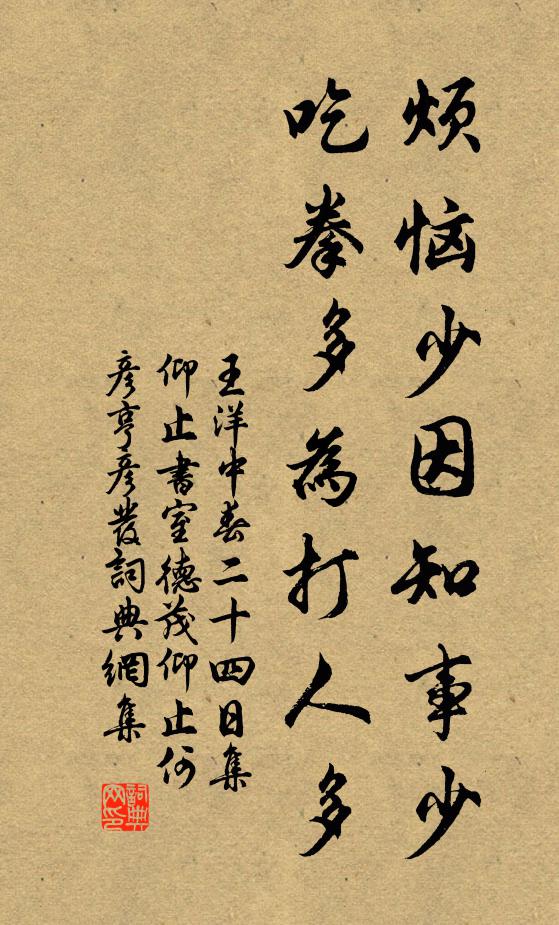 烦恼少因知事少
吃拳多為打人多
王洋中春二十四日集
仰止書室德茂仰止何
彦亨彦發詞典網集
詞典网印